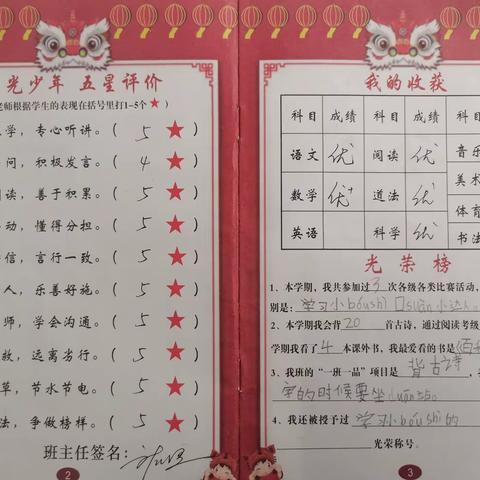 光少年 五星评价
老师根据学生的表现在括号里打1-5个★)
学，专心听讲。( 5 ★ )
问，积极发言。( 4 ★ )
阅读，善于积累。( 5 ★ )
动，懂得分担。( 5 ★ )
信，言行一致。( 5 ★ )
人，乐善好施。( 5 ★ )
师，学会沟通。( 5 ★ )
远离劣行。( 5 ★ )
草，节水节电。( 5 ★ )
法，争做榜样。( 5 ★ )
班主任签名：
2
我的收获
科目 成绩 科目 成绩 科目
语文 优 阅读 优 音乐
数学 优+ 道法 优 美术
体育
英语 科学 优 书法
光荣榜
1、本学期，我共参加过 3 次各级各类比赛活动，
别是：学习小bóushì 口suàn小达人
2、本学期我会背 20 首古诗，通过阅读考级
学期我看了 4 本课外书，我最爱看的书是《西
3、我班的“一班一品”项目是 背古诗
的时候要坐duān
4、我还被授予过 学习小bóushì的
光荣称号。
3